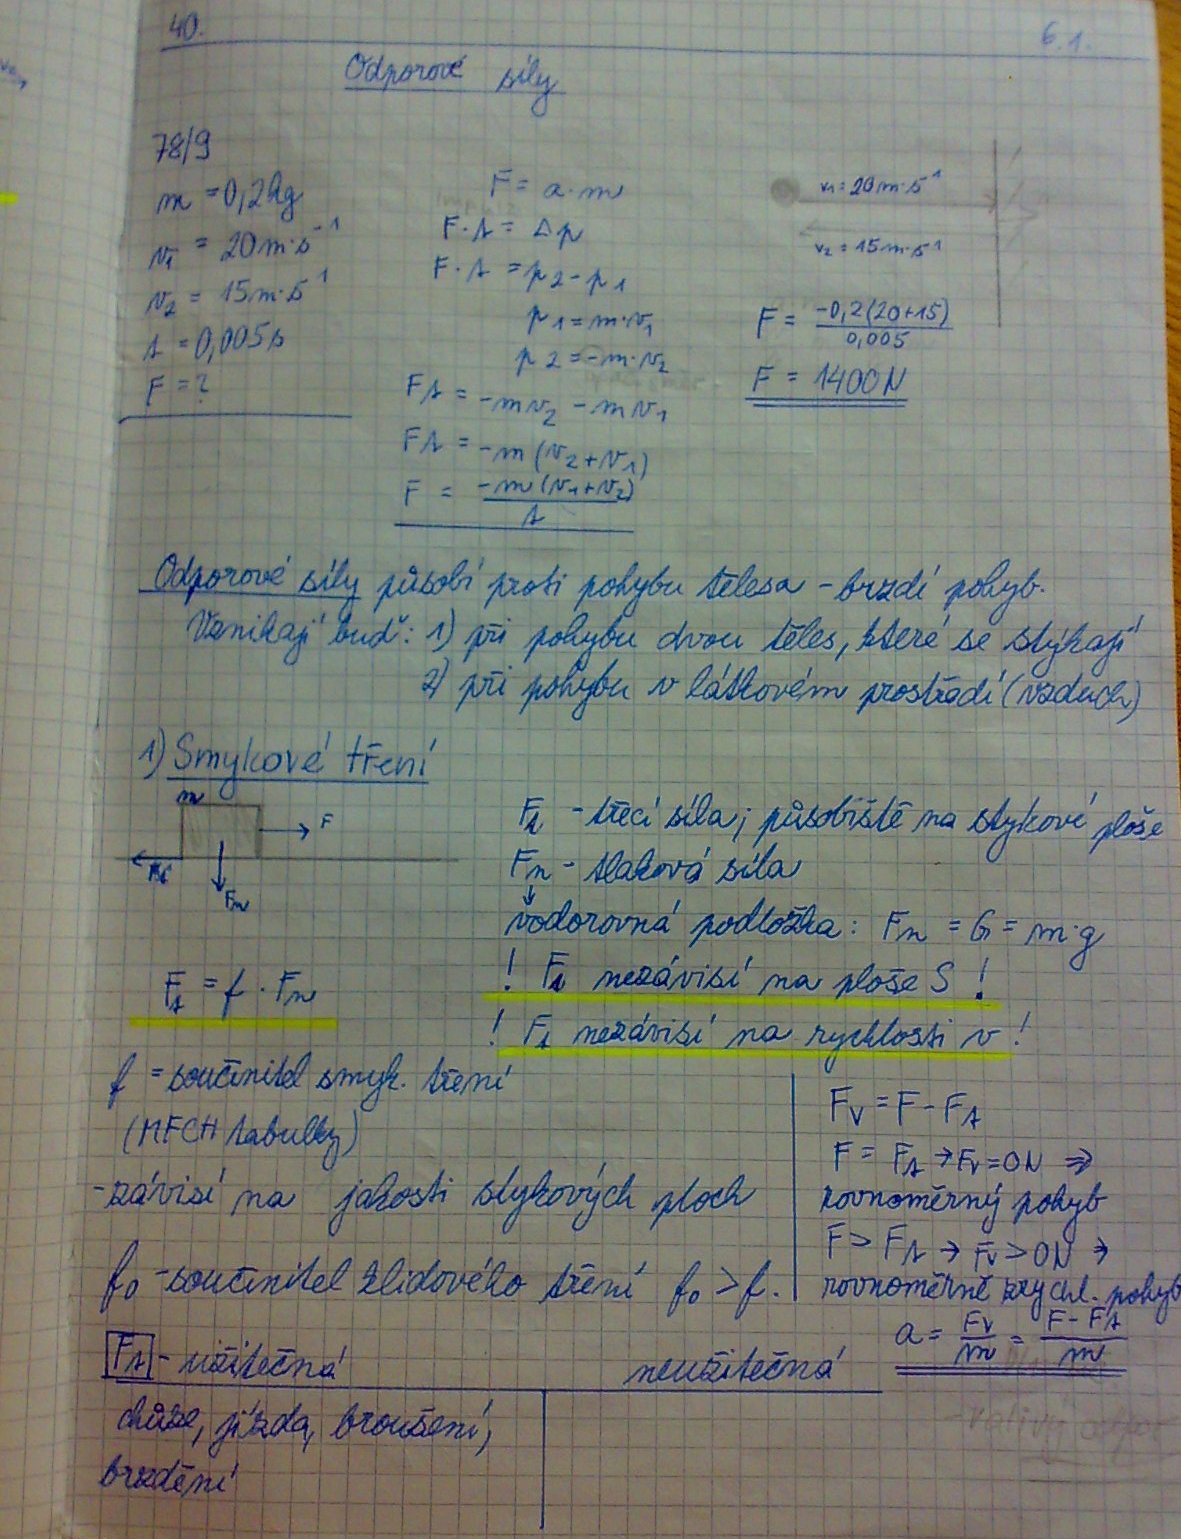 40.
6.1.
Odporové síly
78/9
m = 0,2kg
v₁ = 20m·s⁻¹
v₂ = 15m·s⁻¹
t = 0,005s
F = ?
F = a·m
F·t = Δp
F·t = p₂ - p₁
p₁ = m·v₁
p₂ = -m·v₂
Ft = -mv₂ - mv₁
Ft = -m(v₂+v₁)
F = -m(v₁+v₂)/t
v₁ = 20m·s⁻¹
v₂ = 15m·s⁻¹
F = -0,2(20+15)/0,005
F = 1400N
Odporové síly působí proti pohybu tělesa - brzdí pohyb.
Vznikají buď: 1) při pohybu dvou těles, které se stýkají
2) při pohybu v látkovém prostředí (vzduch)
1) Smykové tření
m
F
Ft
Fn
Ft - třecí síla; působiště na stykové ploše
Fn - tlaková síla
↓
vodorovná podložka: Fn = G = m·g
! Ft nezávisí na ploše S !
! Ft nezávisí na rychlosti v !
Ft = f · Fn
f = součinitel smyk. tření
(MFCH tabulky)
- závisí na jakosti stykových ploch
f₀ - součinitel klidového tření f₀ > f.
Fv = F - Ft
F = Ft → Fv = 0N ⇒
rovnoměrný pohyb
F > Ft → Fv > 0N ⇒
rovnoměrně zrychl. pohyb
a = Fv/m = F - Ft/m
Ft - užitečná neužitečná
chůze, jízda, broušení,
brzdění
- valivý odpor